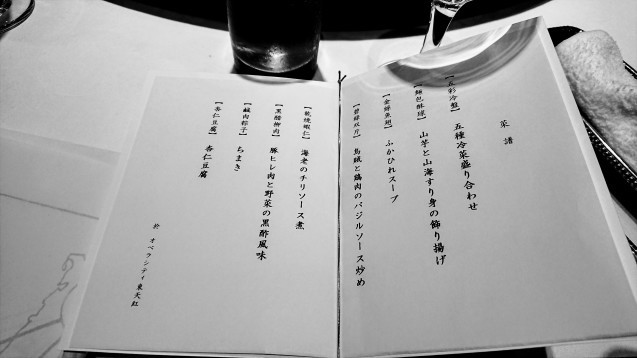 菜譜
【五彩冷盤】 五種冷菜盛り合わせ
【麺包酥球】 山芋と山海すり身の飾り揚げ
【金絲魚翅】 ふかひれスープ
【碧緑双片】 烏賊と鶏肉のバジルソース炒め
【乾焼蝦仁】 海老のチリソース煮
【黒醋柳肉】 豚ヒレ肉と野菜の黒酢風味
【鹹肉粽子】 ちまき
【杏仁豆腐】 杏仁豆腐
於 オペラシティ東天紅